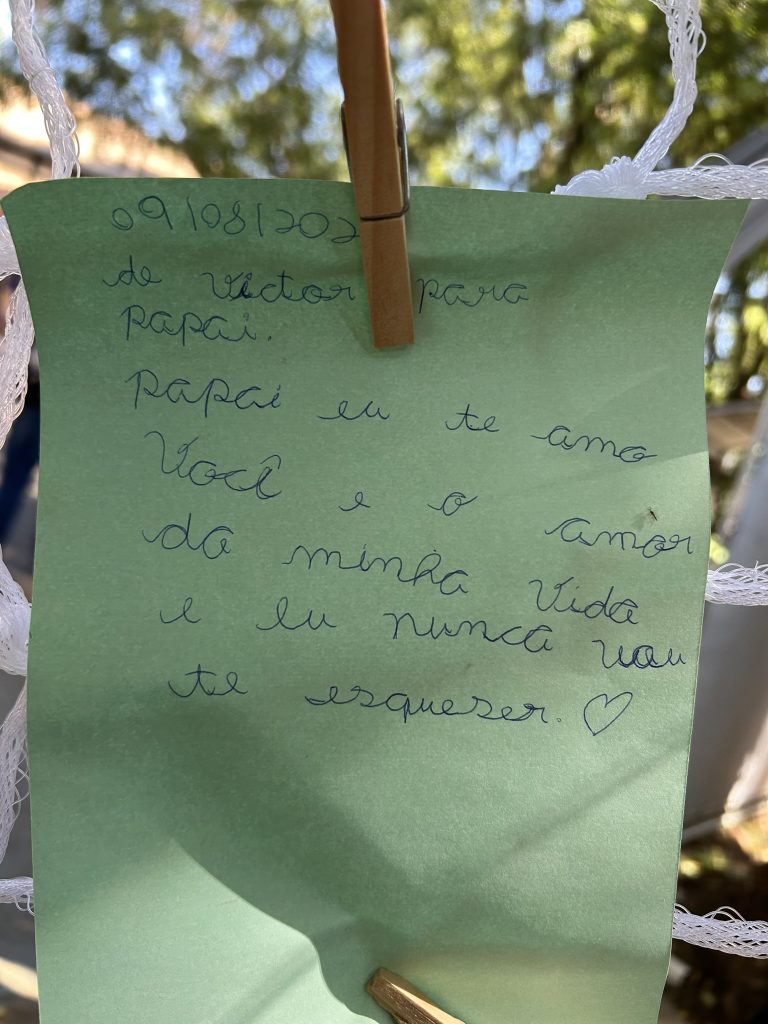 09/08/202
de Victor para
papai.
papai eu te amo
Você e o amor
da minha vida
e eu nunca vou
te esqueser. ♡